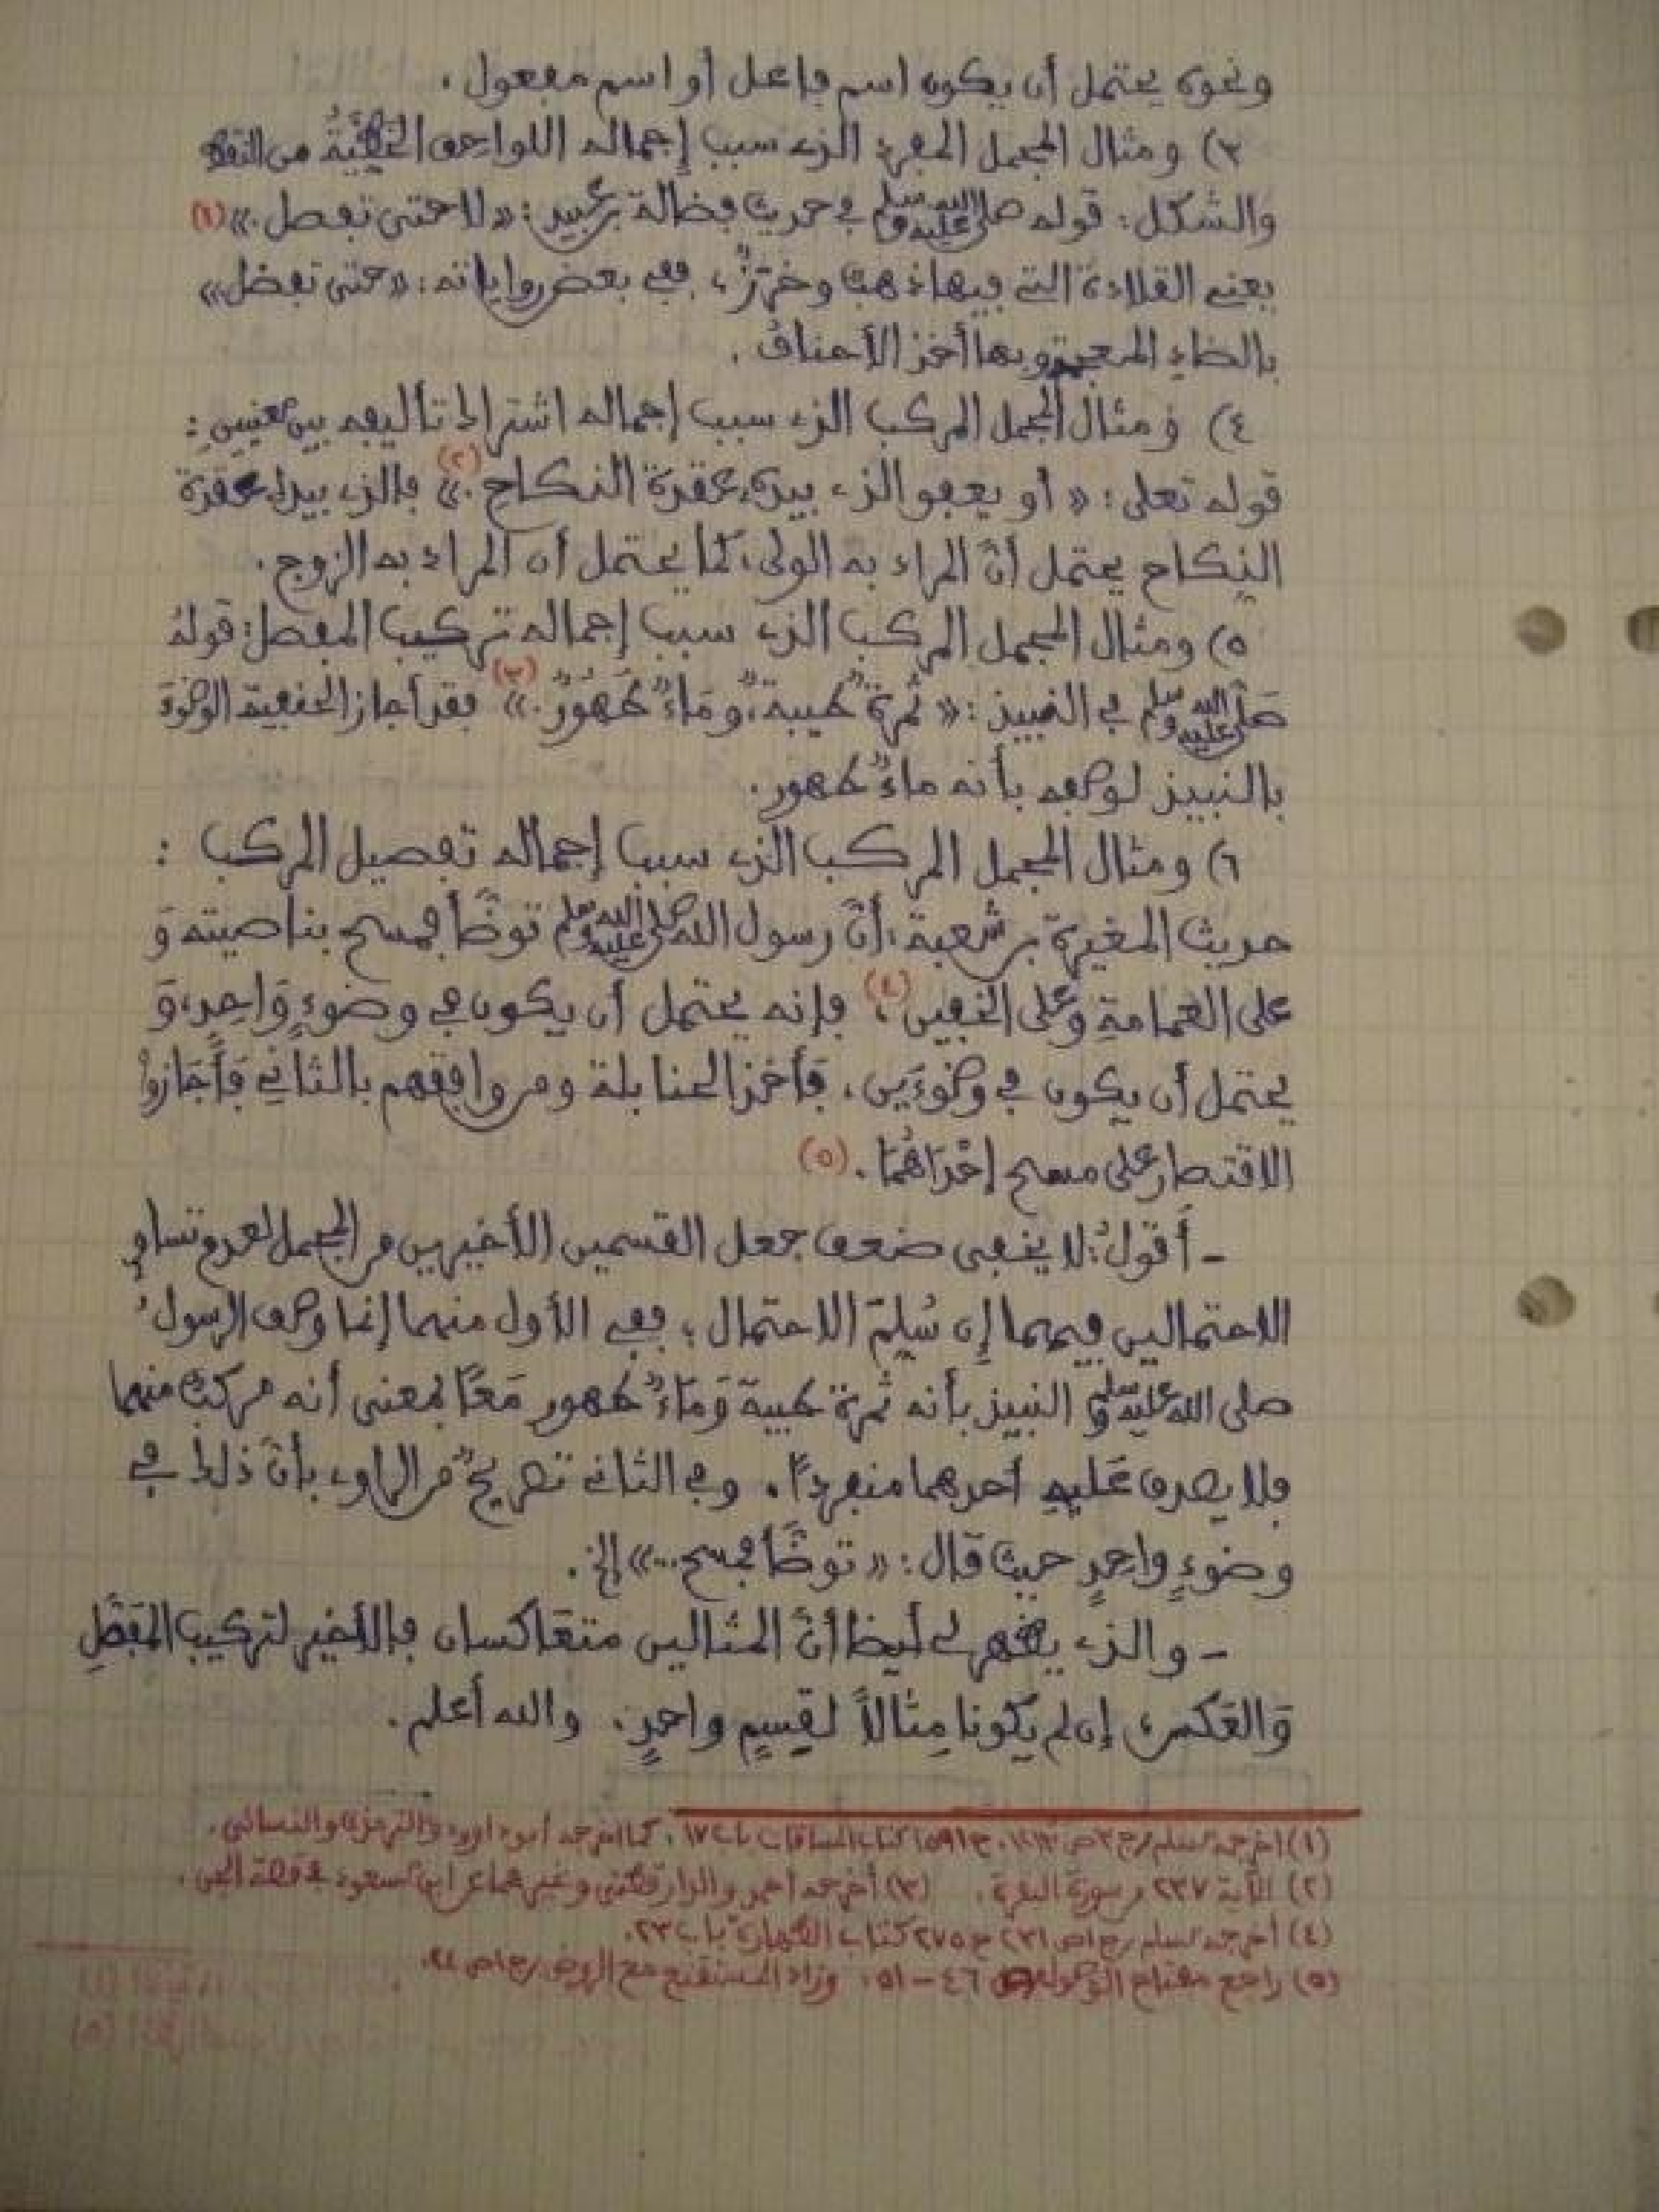 ونحوه يحتمل أن يكون اسم فاعل أو اسم مفعول.
٣) ومثال المجمل المفرد الذي سبب إجماله اللواحق الخَطِّيَّةُ من النقط
والشكل: قوله صلى الله عليه وسلم في حديث فضالة بن عبيد: «لا حتى تفصل.» (١)
يعني القلادة التي فيها ذهب وخرزٌ، ففي بعض رواياته: «حتى تفضل»
بالضاد المعجمة وبها أخذ الأحنافُ.
٤) ومثال المجمل المركب الذي سبب إجماله اشتراك تأليفه بين معنيين:
قوله تعلى: «أو يعفو الذي بيده عقدة النكاح.» (٢) فالذي بيده عقدة
النكاح يحتمل أنَّ المراد به الولي، كما يحتمل أن المراد به الزوج.
٥) ومثال المجمل المركب الذي سبب إجماله تركيب المفصل: قولهُ
صَلَّى الله عليه وسلم في النبيذ: «ثمرةٌ طيبةٌ، ومَاءٌ طَهُورٌ.» (٣) فقد أجاز الحنفية الوضوءَ
بالنبيذ لوصفه بأنه ماءٌ طهور.
٦) ومثال المجمل المركب الذي سبب إجماله تفصيل المركب:
حديث المغيرة بن شعبة، أنَّ رسول الله صلى الله عليه وسلم توضَّأ فمسح بناصيته وَ
على العمامةِ وعلى الخفين (٤)، فإنه يحتمل أن يكون في وضوءٍ وَاحِدٍ، وَ
يحتمل أن يكون في وضوءَين، فَأخذ الحنابلة ومن وافقهم بالثاني فَأَجَازواْ
الاقتصار على مسح إحْدَاهُمَا. (٥)
- أقولُ: لا يخفى ضعف جعل القسمين الأخيرين من المجمل لعدم تساوِ
الاحتمالين فيهما إن سُلِّمَ الاحتمال؛ ففي الأول منهما إنما وصف الرسولُ
صلى الله عليه وسلم النبيذ بأنه ثمرة طيبة وَمَاءٌ طهور مَعًا بمعنى أنه مركبٌ منهما
فلا يصدق عَليهِ أحدهما منفردًا. وفي الثاني تصريحٌ من الراوي بأنَّ ذلك في
وضوءٍ واحدٍ حيث قال: «توضَّأ فمسح...» إلخ.
- والذي يظهر لي أيضا أنَّ المثالين متعَاكسان فالأخير لتركيب المفَصَّلِ
وَالعَكس، إن لم يكونا مِثالاً لقِسمٍ واحدٍ. والله أعلم.
(١) أخرجه مسلم ج ٣ ص ١٢١٣، ح ١٥٩١ كتاب المساقات باب ١٧، كما أخرجه أبو داوود والترمذي والنسائي.
(٢) الآية ٢٣٧ من سورة البقرة. (٣) أخرجه أحمد والدارقطني وغيرهما عن ابن مسعود في قصة الجن.
(٤) أخرجه مسلم ج ١ ص ٢٣١ ح ٢٧٥ كتاب الطهارة باب ٢٣.
(٥) راجع مفتاح الوصول ص ٤٦ - ٥١، وزاد المستقنع مع الروض ج ١ ص